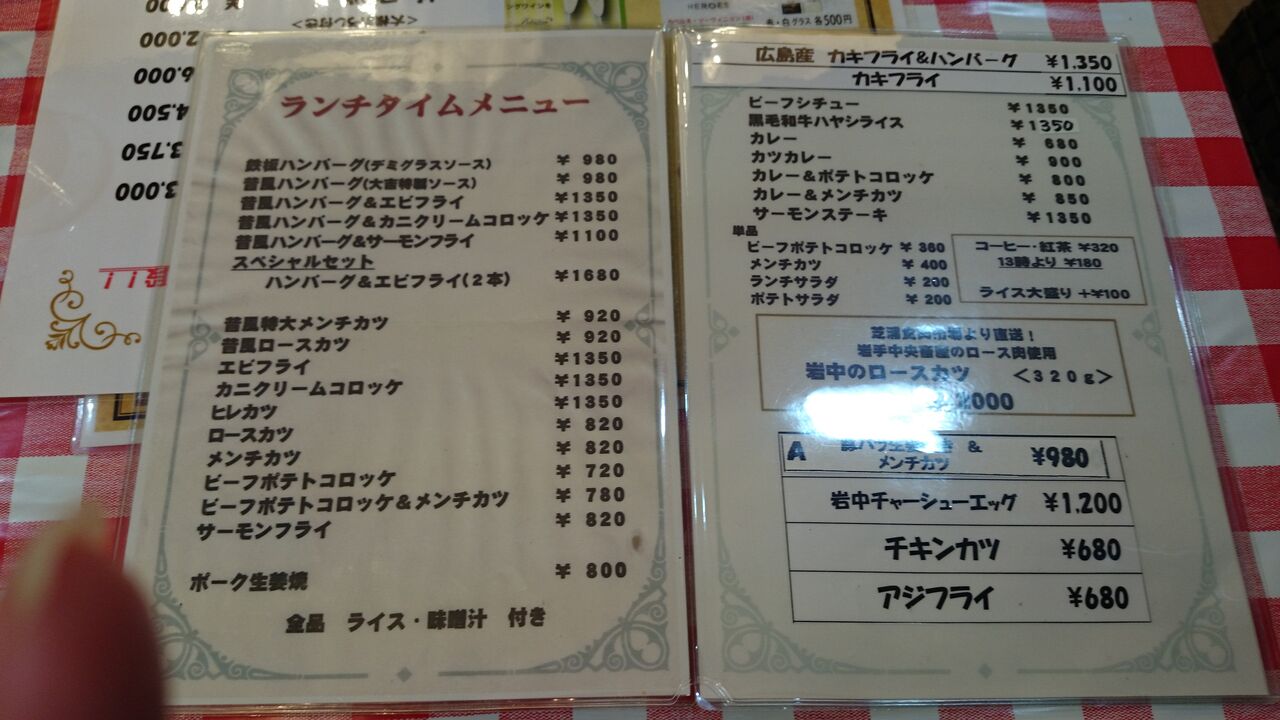 ランチタイムメニュー
鉄板ハンバーグ(デミグラスソース) ￥ 980
昔風ハンバーグ(大吉特製ソース) ￥ 980
昔風ハンバーグ＆エビフライ ￥1350
昔風ハンバーグ＆カニクリームコロッケ ￥1350
昔風ハンバーグ＆サーモンフライ ￥1100
スペシャルセット
ハンバーグ＆エビフライ(２本) ￥1680
昔風特大メンチカツ ￥ 920
昔風ロースカツ ￥ 920
エビフライ ￥1350
カニクリームコロッケ ￥1350
ヒレカツ ￥1350
ロースカツ ￥ 820
メンチカツ ￥ 820
ビーフポテトコロッケ ￥ 720
ビーフポテトコロッケ＆メンチカツ ￥ 780
サーモンフライ ￥ 820
ポーク生姜焼 ￥ 800
全品 ライス・味噌汁 付き
広島産 カキフライ&ハンバーグ ￥1.350
カキフライ ￥1.100
ビーフシチュー ￥1350
黒毛和牛ハヤシライス ￥1350
カレー ￥ 680
カツカレー ￥ 900
カレー＆ポテトコロッケ ￥ 800
カレー＆メンチカツ ￥ 850
サーモンステーキ ￥1350
単品
ビーフポテトコロッケ ￥ 360
メンチカツ ￥ 400
ランチサラダ ￥ 200
ポテトサラダ ￥ 200
コーヒー・紅茶 ￥320
13時より ￥180
ライス大盛り +￥100
より直送！
岩手中央畜産のロース肉使用
岩中のロースカツ ＜３２０ｇ＞
2000
A &
メンチカツ ￥980
岩中チャーシューエッグ ￥1.200
チキンカツ ￥680
アジフライ ￥680
HEROES
赤・白グラス 各500円
6.000
4.500
3.750
3.000